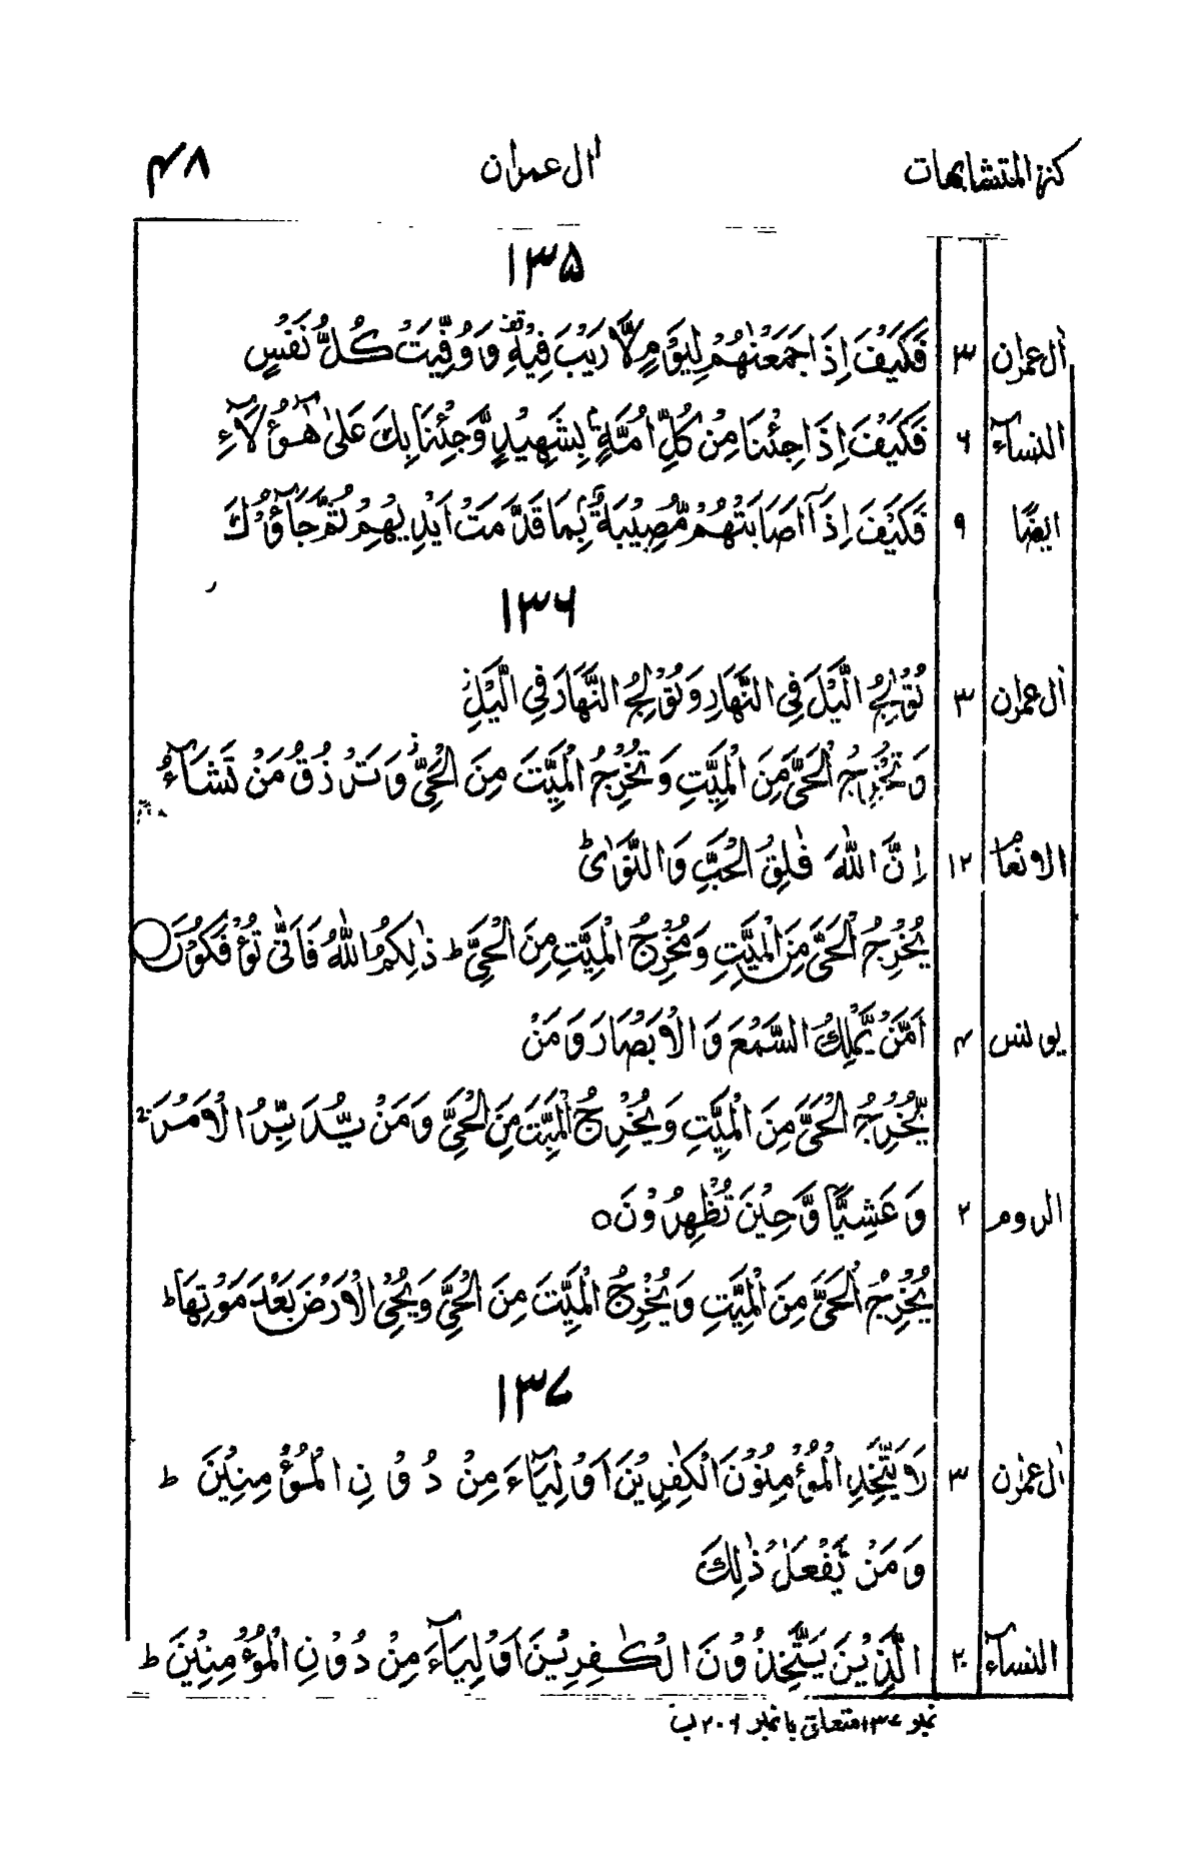 كنز المتشابهات اٰل عمران ۴۸
۱۳۵
اٰل عمرٰن ۳ فَكَيْفَ اِذَا جَمَعْنٰهُمْ لِيَوْمٍ لَّا رَيْبَ فِيْهِ قف وَوُفِّيَتْ كُلُّ نَفْسٍ
النسآء ۶ فَكَيْفَ اِذَا جِئْنَا مِنْ كُلِّ اُمَّةٍۭ بِشَهِيْدٍ وَّجِئْنَا بِكَ عَلٰى هٰٓؤُلَآءِ
ایضًا ۹ فَكَيْفَ اِذَآ اَصَابَتْهُمْ مُّصِيْبَةٌۢ بِمَا قَدَّمَتْ اَيْدِيْهِمْ ثُمَّ جَآءُوْكَ
۱۳۶
اٰل عمرٰن ۳ تُوْلِجُ الَّيْلَ فِى النَّهَارِ وَتُوْلِجُ النَّهَارَ فِى الَّيْلِ ز
وَتُخْرِجُ الْحَىَّ مِنَ الْمَيِّتِ وَتُخْرِجُ الْمَيِّتَ مِنَ الْحَىِّ ز وَتَرْزُقُ مَنْ تَشَآءُ
الانعام ۱۲ اِنَّ اللّٰهَ فٰلِقُ الْحَبِّ وَالنَّوٰىط
يُخْرِجُ الْحَىَّ مِنَ الْمَيِّتِ وَمُخْرِجُ الْمَيِّتِ مِنَ الْحَىِّ ط ذٰلِكُمُ اللّٰهُ فَاَنّٰى تُؤْفَكُوْنَ ○
يونس ۴ اَمَّنْ يَّمْلِكُ السَّمْعَ وَالْاَبْصَارَ وَمَنْ
يُّخْرِجُ الْحَىَّ مِنَ الْمَيِّتِ وَيُخْرِجُ الْمَيِّتَ مِنَ الْحَىِّ وَمَنْ يُّدَبِّرُ الْاَمْرَ ط
الروم ۲ وَعَشِيًّا وَّحِيْنَ تُظْهِرُوْنَ ○
يُخْرِجُ الْحَىَّ مِنَ الْمَيِّتِ وَيُخْرِجُ الْمَيِّتَ مِنَ الْحَىِّ وَيُحْىِ الْاَرْضَ بَعْدَ مَوْتِهَا ط
۱۳۷
اٰل عمرٰن ۳ لَا يَتَّخِذِ الْمُؤْمِنُوْنَ الْكٰفِرِيْنَ اَوْلِيَآءَ مِنْ دُوْنِ الْمُؤْمِنِيْنَ ط
وَمَنْ يَّفْعَلْ ذٰلِكَ
النسآء ۲۰ الَّذِيْنَ يَتَّخِذُوْنَ الْكٰفِرِيْنَ اَوْلِيَآءَ مِنْ دُوْنِ الْمُؤْمِنِيْنَ ط
نمبر ۱۳۷ متعلق با نمبر ۲۰۶ ب